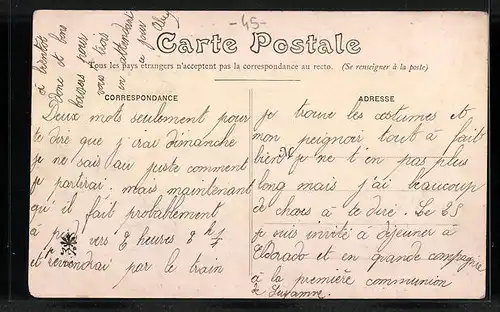 -45-
Carte Postale
Tous les pays étrangers n'acceptent pas la correspondance au recto. (Se renseigner à la poste)
CORRESPONDANCE
Deux mots seulement pour
te dire que j'irai dimanche
je ne sais au juste comment
je partirai; mais maintenant
qu'il fait probablement
à vers 8 heures
et reviendrai par le train
ADRESSE
je trouve les costumes et
mon peignoir tout à fait
bien je ne t'en pas plus
long mais j'ai beaucoup
de choses à te dire. Le 25
je suis invité à déjeuner à
Eldorado et en grande compagnie
à la première communion
de Suzanne.
à bientôt
donc et bons
baisers pour
vous trois
en attendant